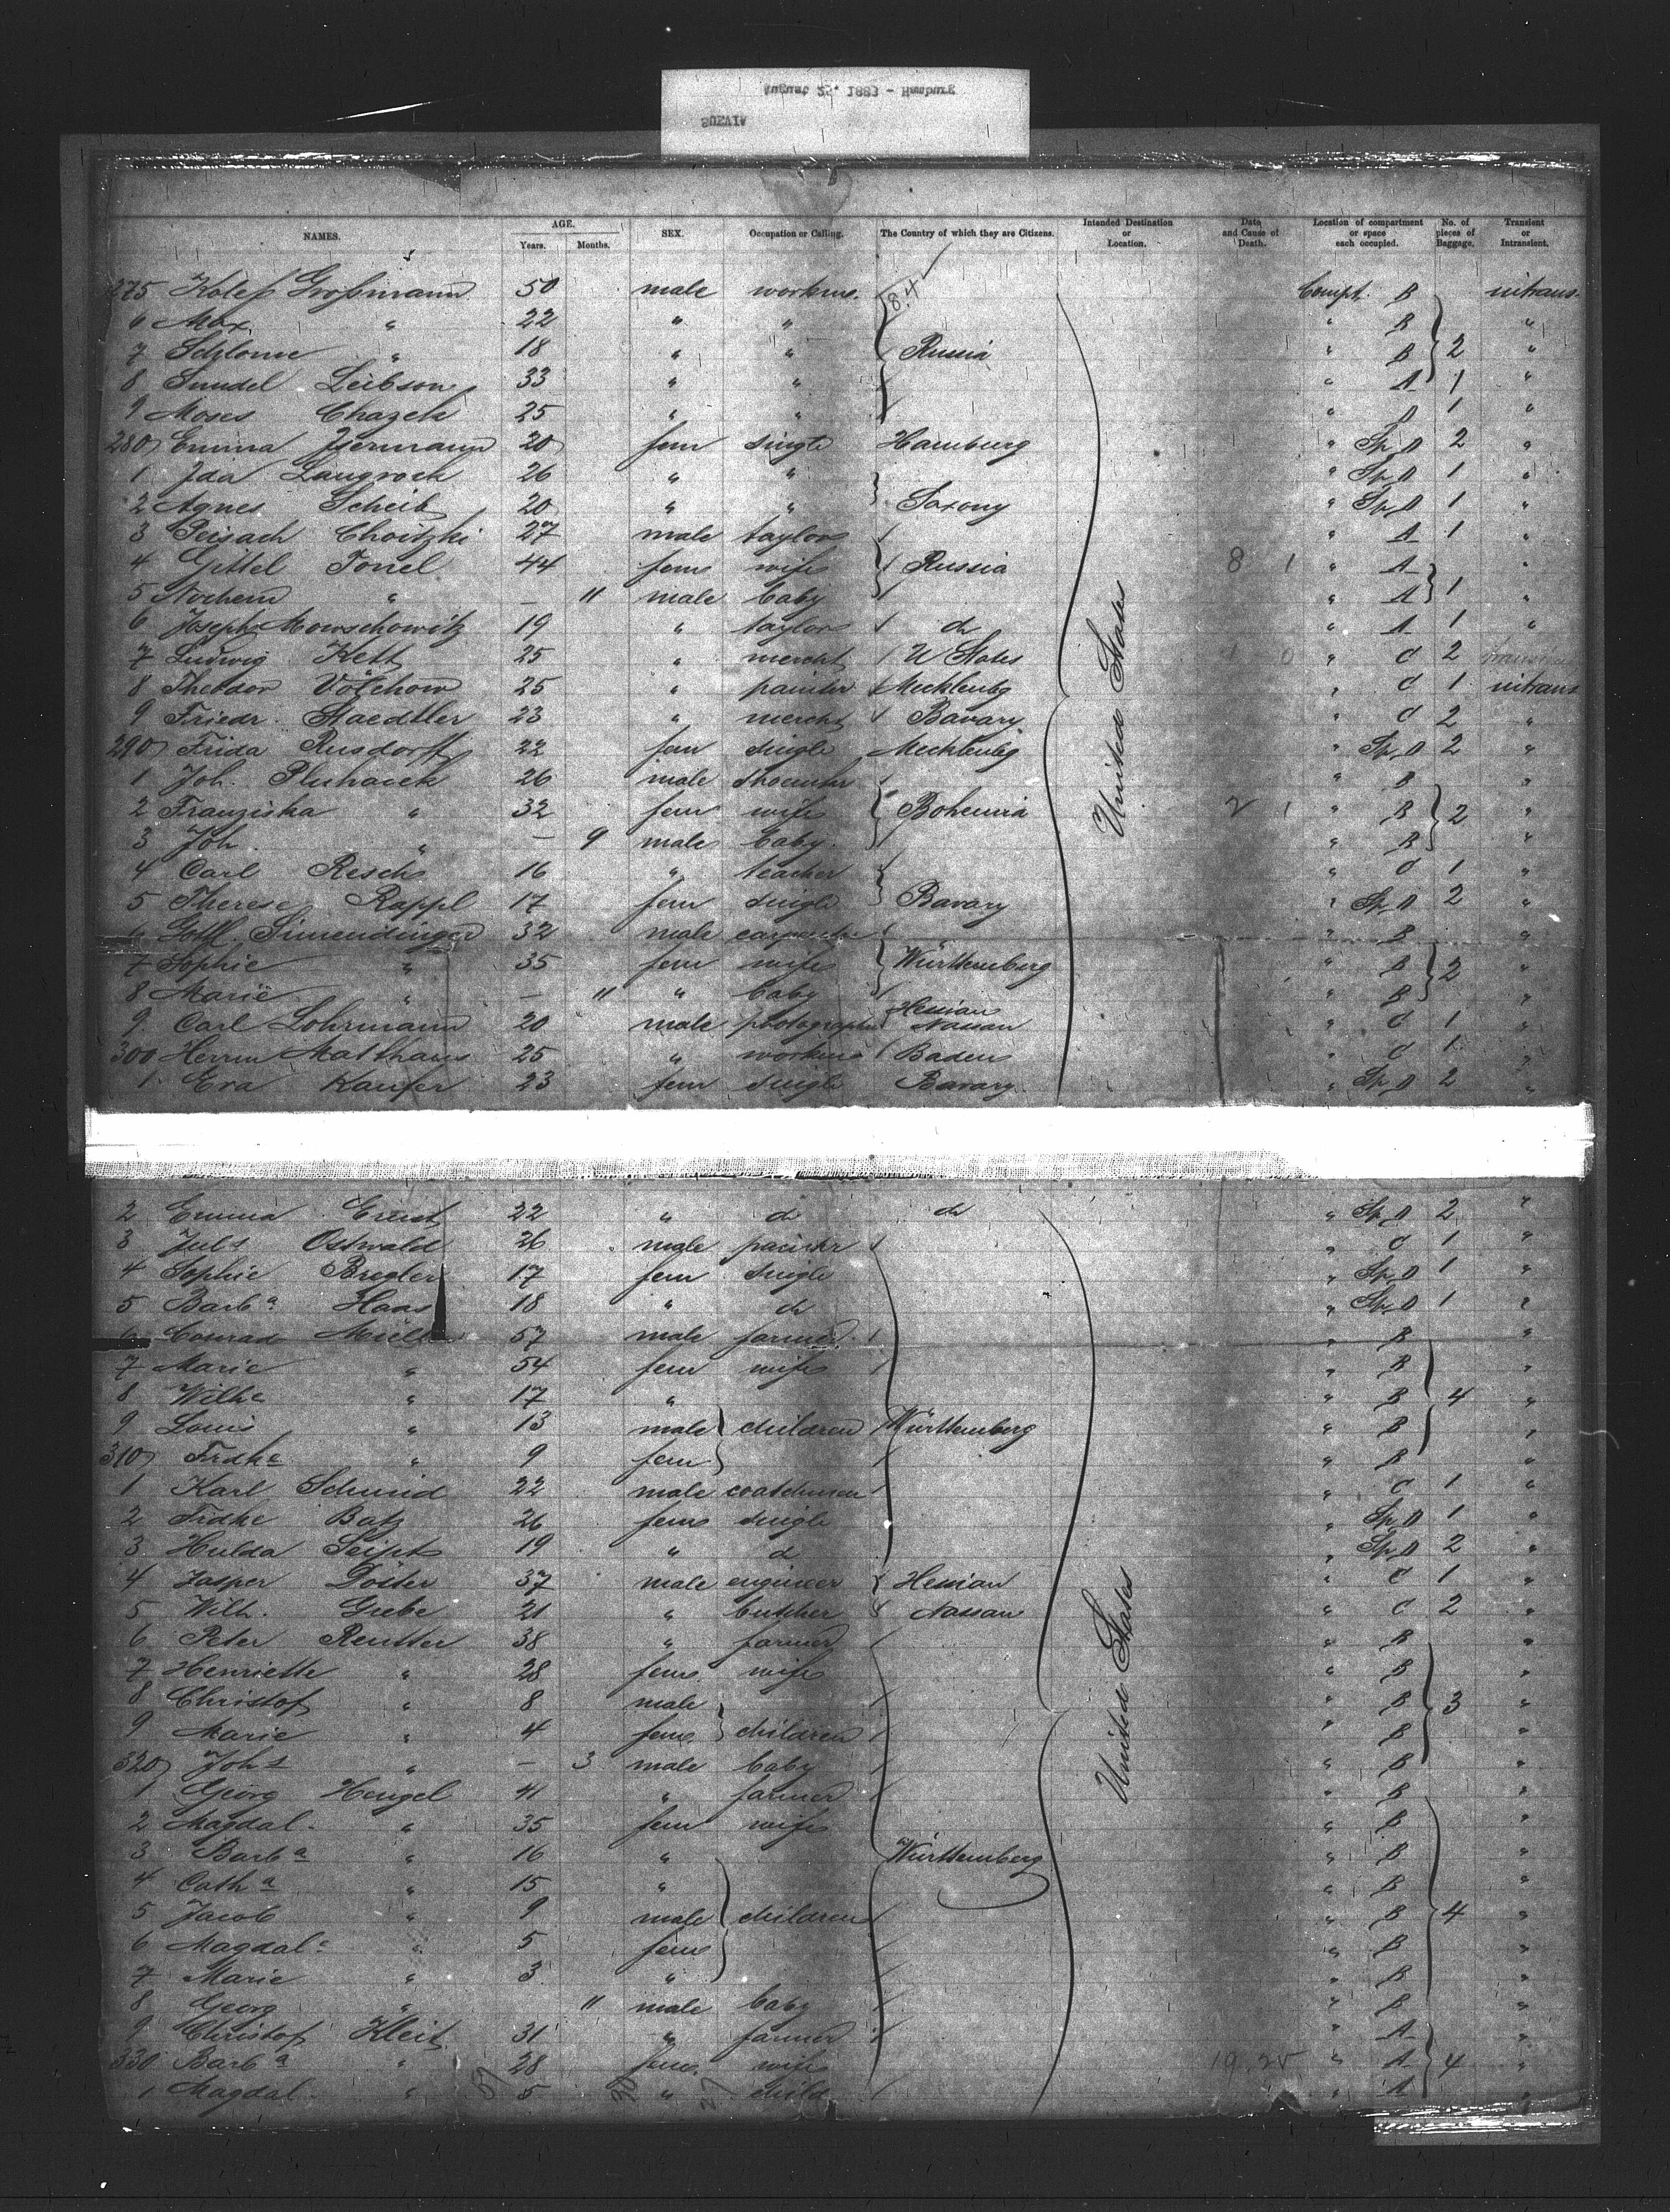 August 25. 1883 - Hamburg
SUEVIA
NAMES. AGE. Years. Months. SEX. Occupation or Calling. The Country of which they are Citizens. Intended Destination or Location. Date and Cause of Death. Location of compartment or space each occupied. No. of pieces of Baggage. Transient or Intransient.
84
275 Großmann 50 male workm. Compt. B intrans.
6 Max " 22 " " " B "
7 " 18 " " Russia " B 2 "
8 Leibson 33 " " " A 1 "
9 Moses Chazek 25 " " " 1 "
280 Emma 20 fem single Hamburg " Sp. D 2 "
1 Ida Langrock 26 " " " Sp. D 1 "
2 Agnes Scheib 20 " " Saxony " Sp. D 1 "
3 Peisach Choitzki 27 male taylor " A 1 "
4 Gittel 44 fem wife Russia 8 1 " A "
5 " — 11 male baby " A 1 "
6 Joseph Mowschowitz 19 " taylor do " A 1 "
7 Ludwig Kett 25 " mercht U States 1 0 " C 2
8 Theodor Völchow 25 " painter Mecklenbg " C 1 intrans
9 Friedr. Staedtler 23 " mercht Bavary " C 2 "
290 Frida Rusdorff 22 fem single Mecklenbg " Sp. D 2 "
1 Joh. Pluhacek 26 male shoemkr " B "
2 Franziska " 32 fem wife Bohemia 2 1 " B 2 "
3 Joh. " — 9 male baby " B "
4 Carl Resch 16 " teacher " C 1 "
5 Therese Rappl 17 fem single Bavary " Sp. D 2 "
6 Gottl. Simendinger 32 male " B "
7 Sophie " 35 fem wife Württemberg " B 2 "
8 Marie " — 11 " baby " B "
9. Carl Lohrmann 20 male photographer Hessian Nassau " C 1 "
300 Herm Matthaus 25 " workm Baden " C 1 "
1. Eva Kaufer 23 fem single Bavary. " Sp. D 2 "
United States
2 Emma Ernst 22 " do do " Sp. D 2 "
3 Juls Ostwald 26 male painter " C 1 "
4 Sophie Bregler 17 fem single " Sp. D 1 "
5 Barba Haas 18 " do " Sp. D 1 "
6 Conrad Müller 57 male farmer " B "
7 Marie " 54 fem wife " B "
8 Wilhe " 17 " " B 4 "
9 Louis " 13 male children Württemberg " B "
310 Fridke " 9 fem " B "
1 Karl Schmid 22 male coatchman " C 1 "
2 Fridke Batz 26 fem single " Sp. D 1 "
3 Hulda Seipt 19 " d " Sp. D 2 "
4 Jasper Döster 37 male engineer Hessian " C 1 "
5 Wilh. Grebe 21 " butcher Nassau " C 2 "
6 Peter Reutter 38 " farmer " B "
7 Henriette " 28 fem wife " B "
8 Christof " 8 male " B 3 "
9 Marie " 4 fem children " B "
320 Johs " — 3 male baby " B "
1 Georg Hengel 41 " farmer " B "
2 Magdal. " 35 fem wife " B "
3 Barba " 16 " Württemberg " B "
4 Catha " 15 " " B "
5 Jacob " 9 male children " B 4 "
6 Magdale " 5 fem " B "
7 Marie " 3 " " B "
8 Georg " 11 male baby " B "
9 Christof Kleit 31 " farmer " A "
330 Barba " 28 fem. wife " A 4 "
1 Magdal. " 5 " child " A "
United States